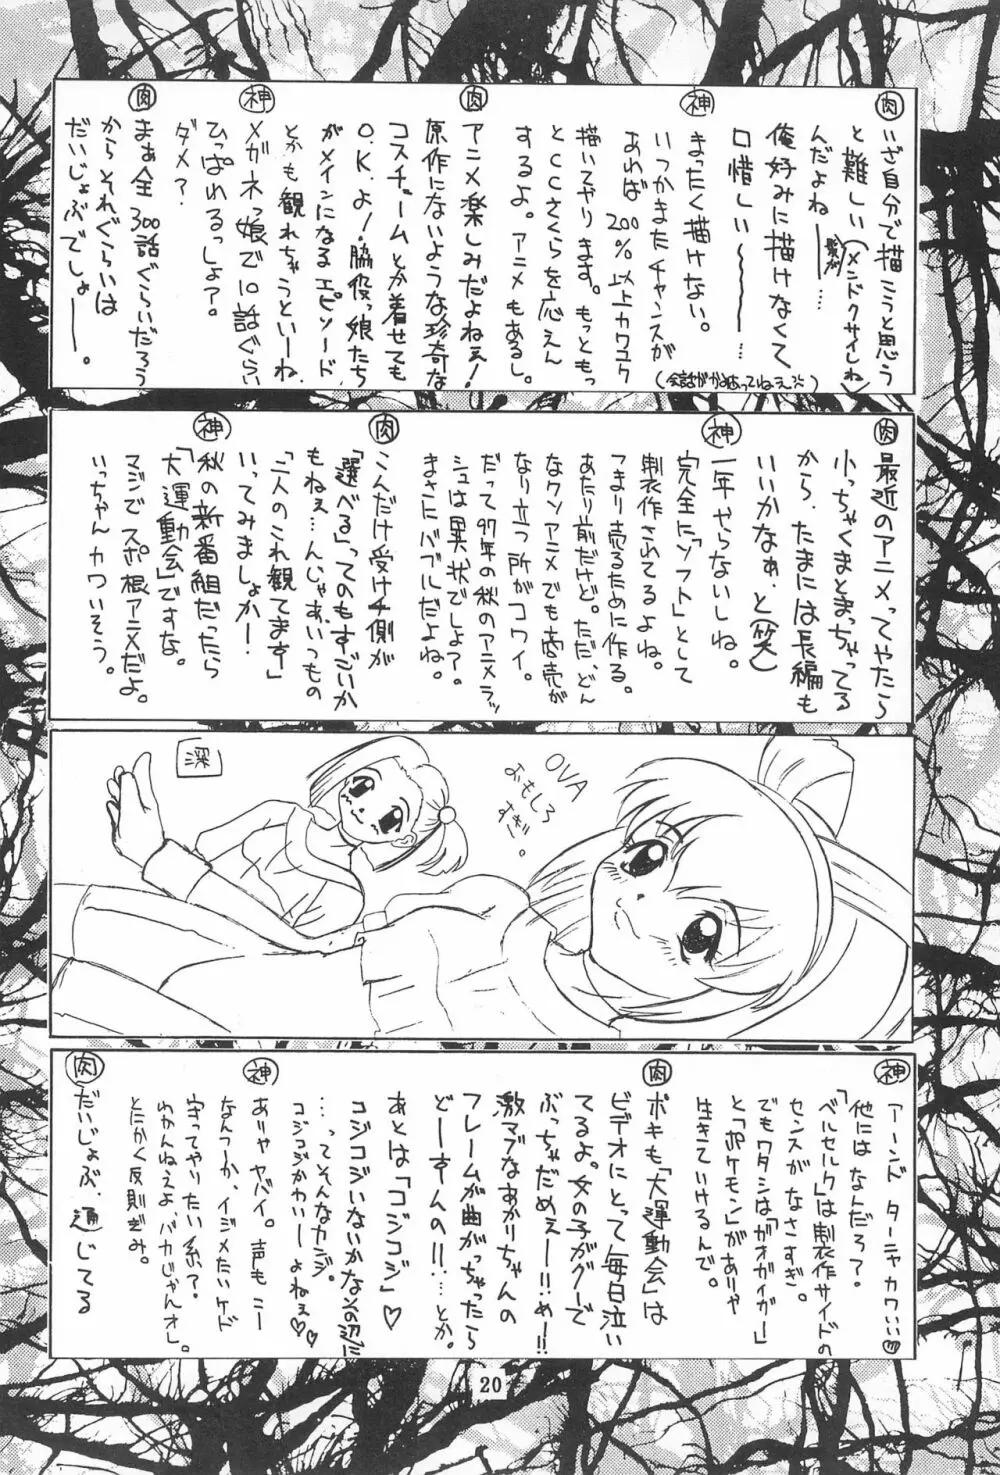 肉
いざ自分で描こうと思う
と難しい(メンドクサイしね)
んだよね——…
髪が
俺好みに描けなくて
口惜しい〜〜〜…
神
まったく描けない。
いつかまたチャンスが
あれば200%以上カワユク
描いてやります。もっともっ
とCCさくらを応えん
するよ。アニメもあるし。
(会話がかみ合っていねェ)
肉
アニメ楽しみだよねェ!
原作にないような珍奇な
コスチュームとか着せても
O.K.よ!脇役っ娘たち
がメインになるエピソード
とかも観れちゃうといーね
神
メガネっ娘で10話ぐらい
ひっぱれるっしょ?
ダメ?
肉
まぁ全300話ぐらいだろう
からそれぐらいは
だいじょぶでしょ——。
肉
最近のアニメってやたら
小っちゃくまとまっちゃってる
から、たまには長編も
いいかなぁ、と(笑)
神
一年やらないしね。
完全に「ソフト」として
制作されてるよね。
つまり売るために作る。
あたり前だけど。ただ、どん
なクソアニメでも商売が
なり立つ所がコワイ。
だって97年の秋のアニメラッ
シュは異状でしょ?
まさにバブルだよね。
肉
こんだけ受け手側が
「選べる」ってのもすごいか
もねェ…んじゃあ、いつもの
「二人のこれ観てます」
いってみましょか!
神
秋の新番組だったら
「大運動会」ですな。
マジでスポ根アニメだよ。
いっちゃんカワいそう。
深
OVA
おもしろ
すぎ。
神
アーンド ターニャカワいい♥
他にはなんだろ?
「ベルセルク」は制作サイドの
センスがなさすぎ。
でもワタシは「ガオガイガー」
と「ポケモン」がありゃ
生きていけるんで。
肉
ボキも「大運動会」は
ビデオにとって毎日泣い
てるよ。女の子がグーで
ぶっちゃだめェ——!!め——!!
激マブなあかりちゃんの
フレームが曲がっちゃったら
どーすんの!!…とか。
あとは「コジコジ」♡
コジコジいないかなその辺に
…ってそんなカンジ。
コジコジかわいーよねェ♡♡
神
ありゃヤバイ。声もニー
なんつーか、イジメたいケド
守ってやりたい系?
わかんねェよ、バカじゃんオレ。
とにかく反則ぎみ。
肉
だいじょぶ、通じてる
20